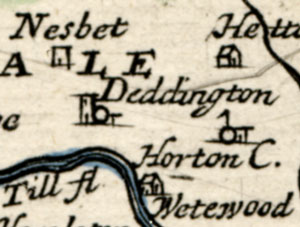 Nesbet
Hetto
A L E
Deddington
Horton C.
Till fl
Wetewood